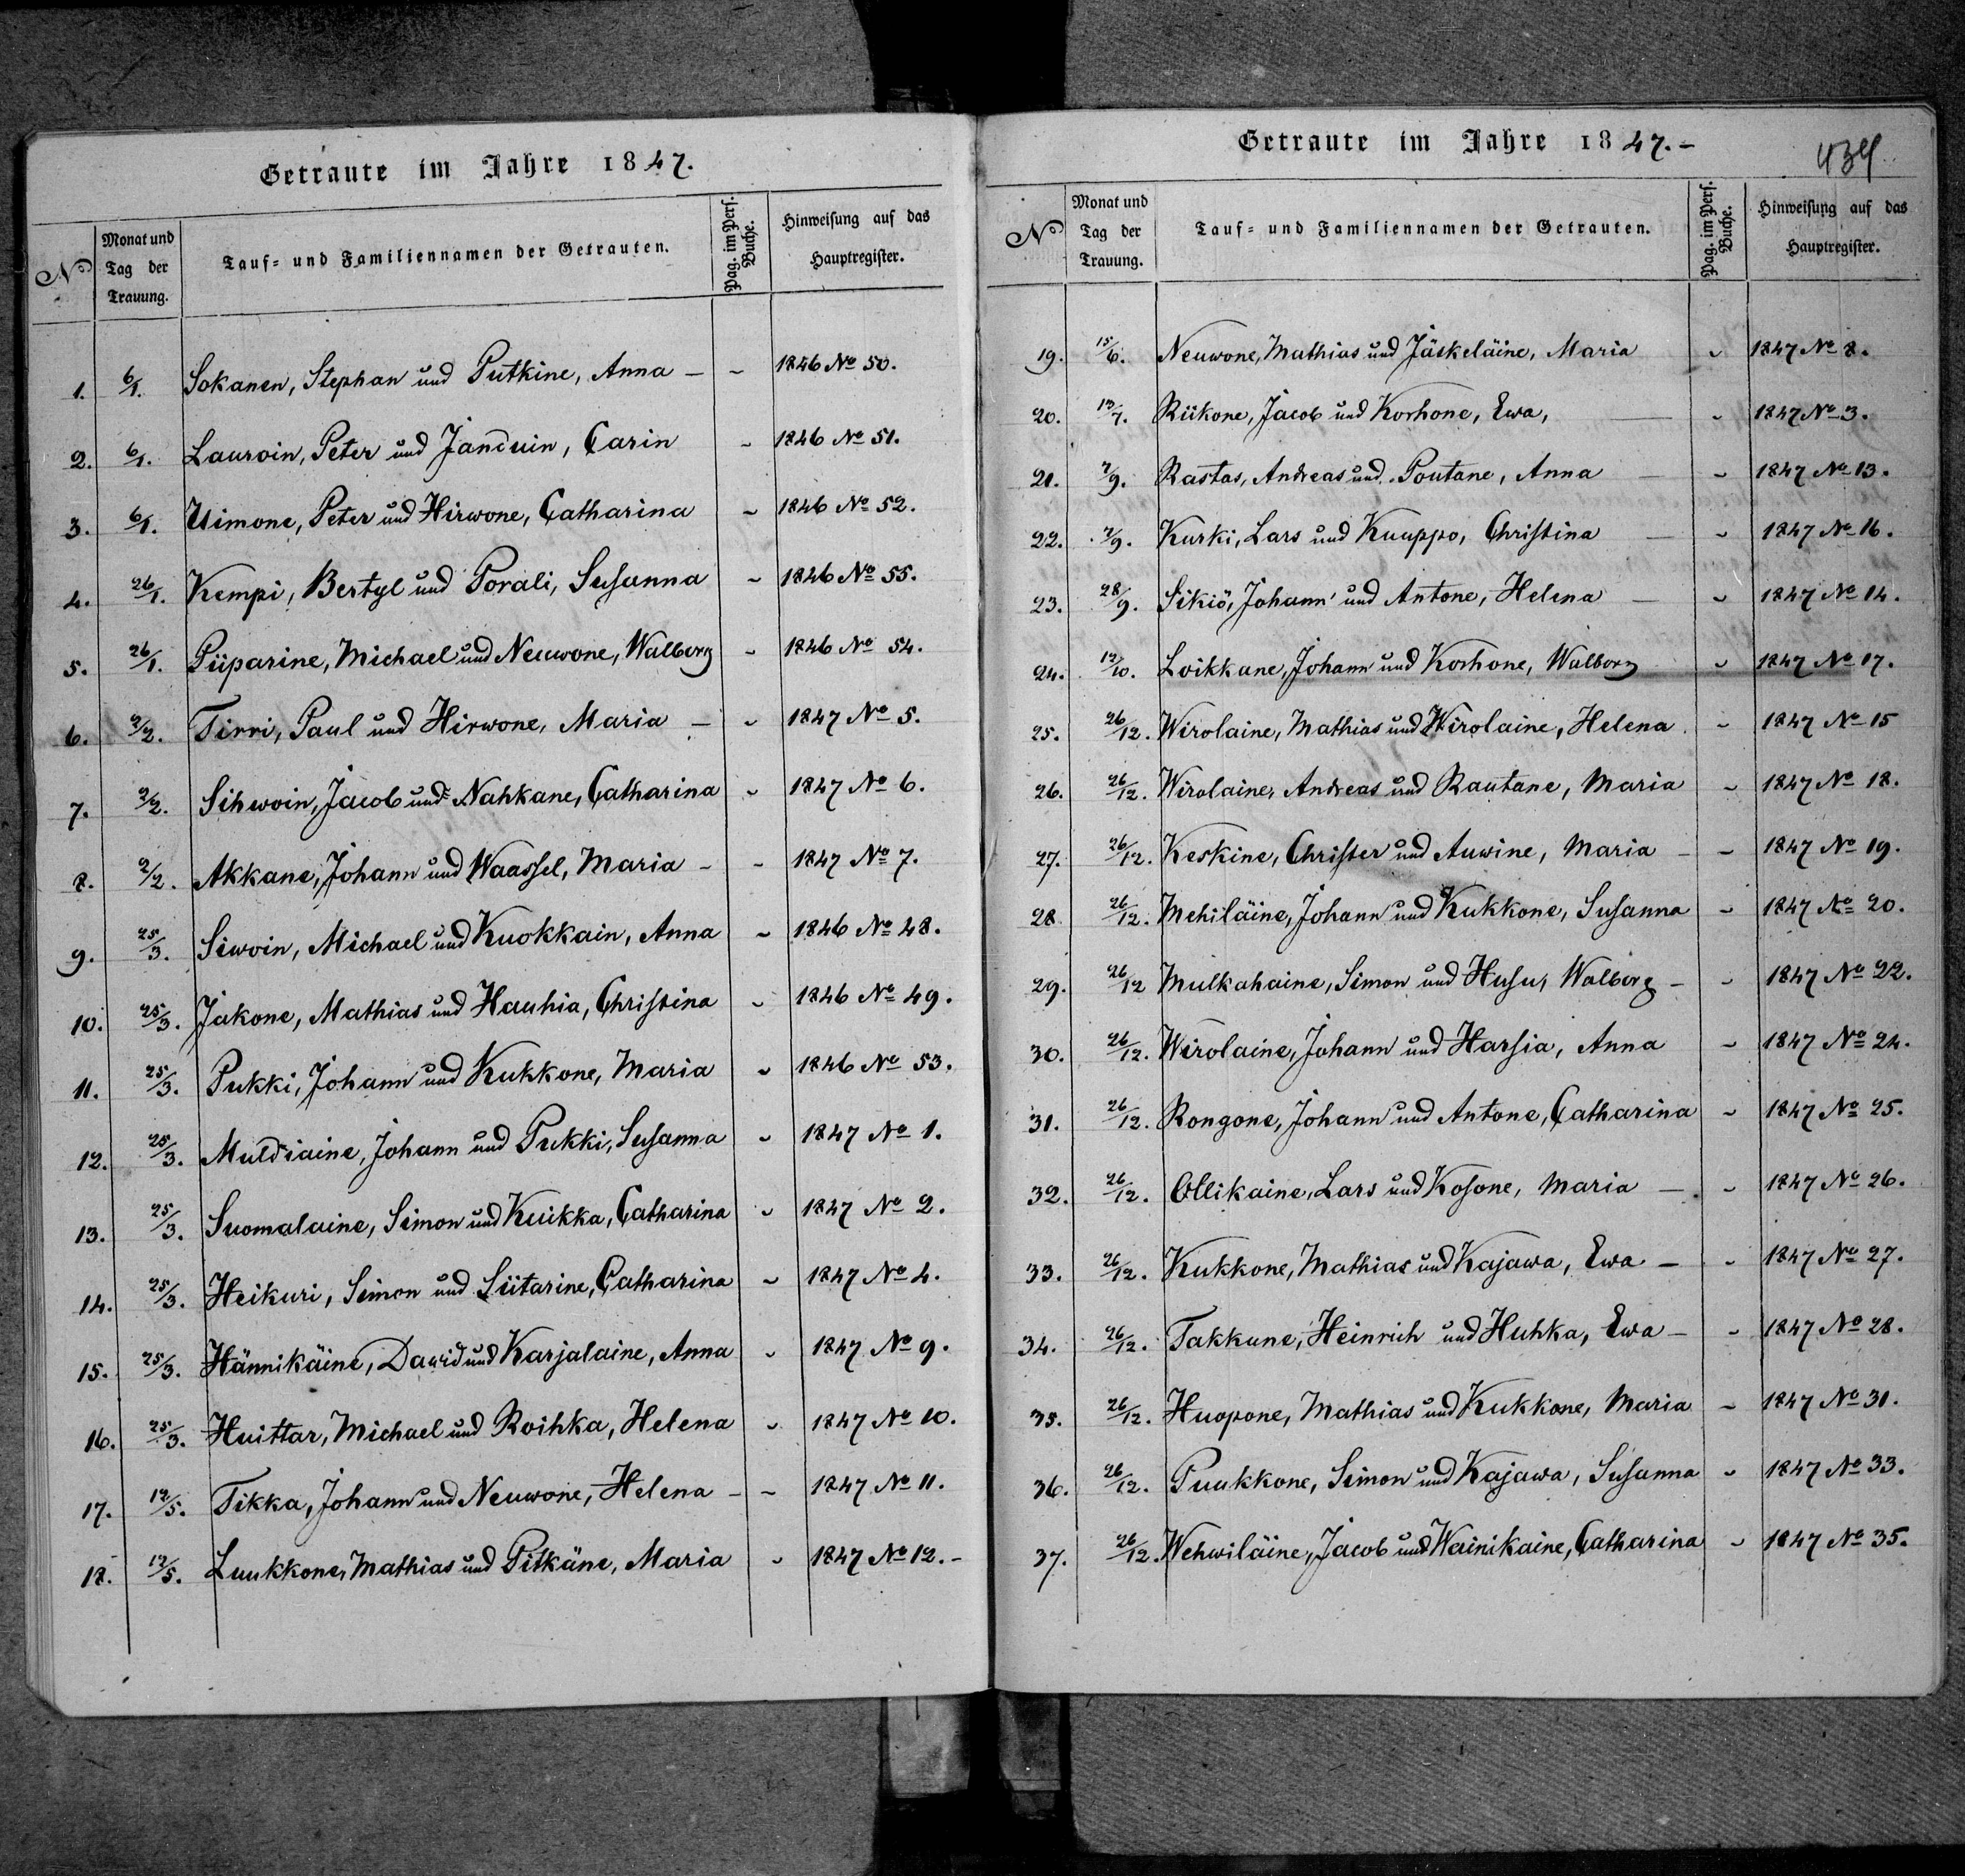 Getraute im Jahre 1847.
No
Monat und Tag der Trauung.
Tauf= und Familiennamen der Getrauten.
Pag. im Pers. Buche.
Hinweisung auf das Hauptregister.
1. 6/1. Sokanen, Stephan und Putkine, Anna – - 1846 No 50.
2. 6/1. Lauroin, Peter und Janduin, Carin - 1846 No 51.
3. 6/1. Uimone, Peter und Hirwone, Catharina - 1846 No 52.
4. 26/1. Kempi, Bertyl und Porali, Susanna - 1846 No 55.
5. 26/1. Piiparine, Michael und Neuwone, Walborg - 1846 No 54.
6. 2/2. Tirri, Paul und Hirwone, Maria – - 1847 No 5.
7. 2/2. Sihwoin, Jacob und Nahkane, Catharina - 1847 No 6.
8. 2/2. Akkane, Johann und Waassel, Maria – - 1847 No 7.
9. 25/3. Siwoin, Michael und Kuokkain, Anna - 1846 No 48.
10. 25/3. Jakone, Mathias und Hauhia, Christina - 1846 No 49.
11. 25/3. Pukki, Johann und Kukkone, Maria - 1846 No 53.
12. 25/3. Muldiaine, Johann und Pukki, Susanna - 1847 No 1.
13. 25/3. Suomalaine, Simon und Kuikka, Catharina - 1847 No 2.
14. 25/3. Heikuri, Simon und Siitarine, Catharina - 1847 No 4.
15. 25/3. Hännikäine, David und Karjalaine, Anna - 1847 No 9.
16. 25/3. Huittar, Michael und Roihka, Helena - 1847 No 10.
17. 12/5. Tikka, Johann und Neuwone, Helena – - 1847 No 11.
18. 12/5. Luukkone, Mathias und Pitkäne, Maria - 1847 No 12. –
Getraute im Jahre 1847. –
No
Monat und Tag der Trauung.
Tauf= und Familiennamen der Getrauten.
Pag. im Pers. Buche.
Hinweisung auf das Hauptregister.
19. 15/6. Neuwone, Mathias und Jäskeläine, Maria - 1847 No 8.
20. 13/7. Riikone, Jacob und Korhone, Ewa, – - 1847 No 3.
21. 7/9. Rastas, Andreas und Poutane, Anna – - 1847 No 13.
22. 7/9. Kurki, Lars und Kuuppo, Christina – - 1847 No 16.
23. 28/9. Sikiö, Johann und Antone, Helena – - 1847 No 14.
24. 12/10. Loikkane, Johann und Korhone, Walborg - 1847 No 17.
25. 26/12. Wirolaine, Mathias und Wirolaine, Helena - 1847 No 15
26. 26/12. Wirolaine, Andreas und Rautane, Maria - 1847 No 18.
27. 26/12. Keskine, Christer und Auwine, Maria – - 1847 No 19.
28. 26/12. Mehiläine, Johann und Kukkone, Susanna - 1847 No 20.
29. 26/12 Mulkahaine, Simon und Husu, Walborg – - 1847 No 22.
30. 26/12. Wirolaine, Johann und Harsia, Anna - 1847 No 24.
31. 26/12. Rongone, Johann und Antone, Catharina - 1847 No 25.
32. 26/12. Ollikaine, Lars und Kosone, Maria – - 1847 No 26.
33. 26/12. Kukkone, Mathias und Kajawa, Ewa – - 1847 No 27.
34. 26/12. Takkune, Heinrich und Huhka, Ewa – - 1847 No 28.
35. 26/12. Huopone, Mathias und Kukkone, Maria - 1847 No 31.
36. 26/12. Puukkone, Simon und Kajawa, Susanna - 1847 No 33.
37. 26/12. Wehwiläine, Jacob und Wainikaine, Catharina - 1847 No 35.